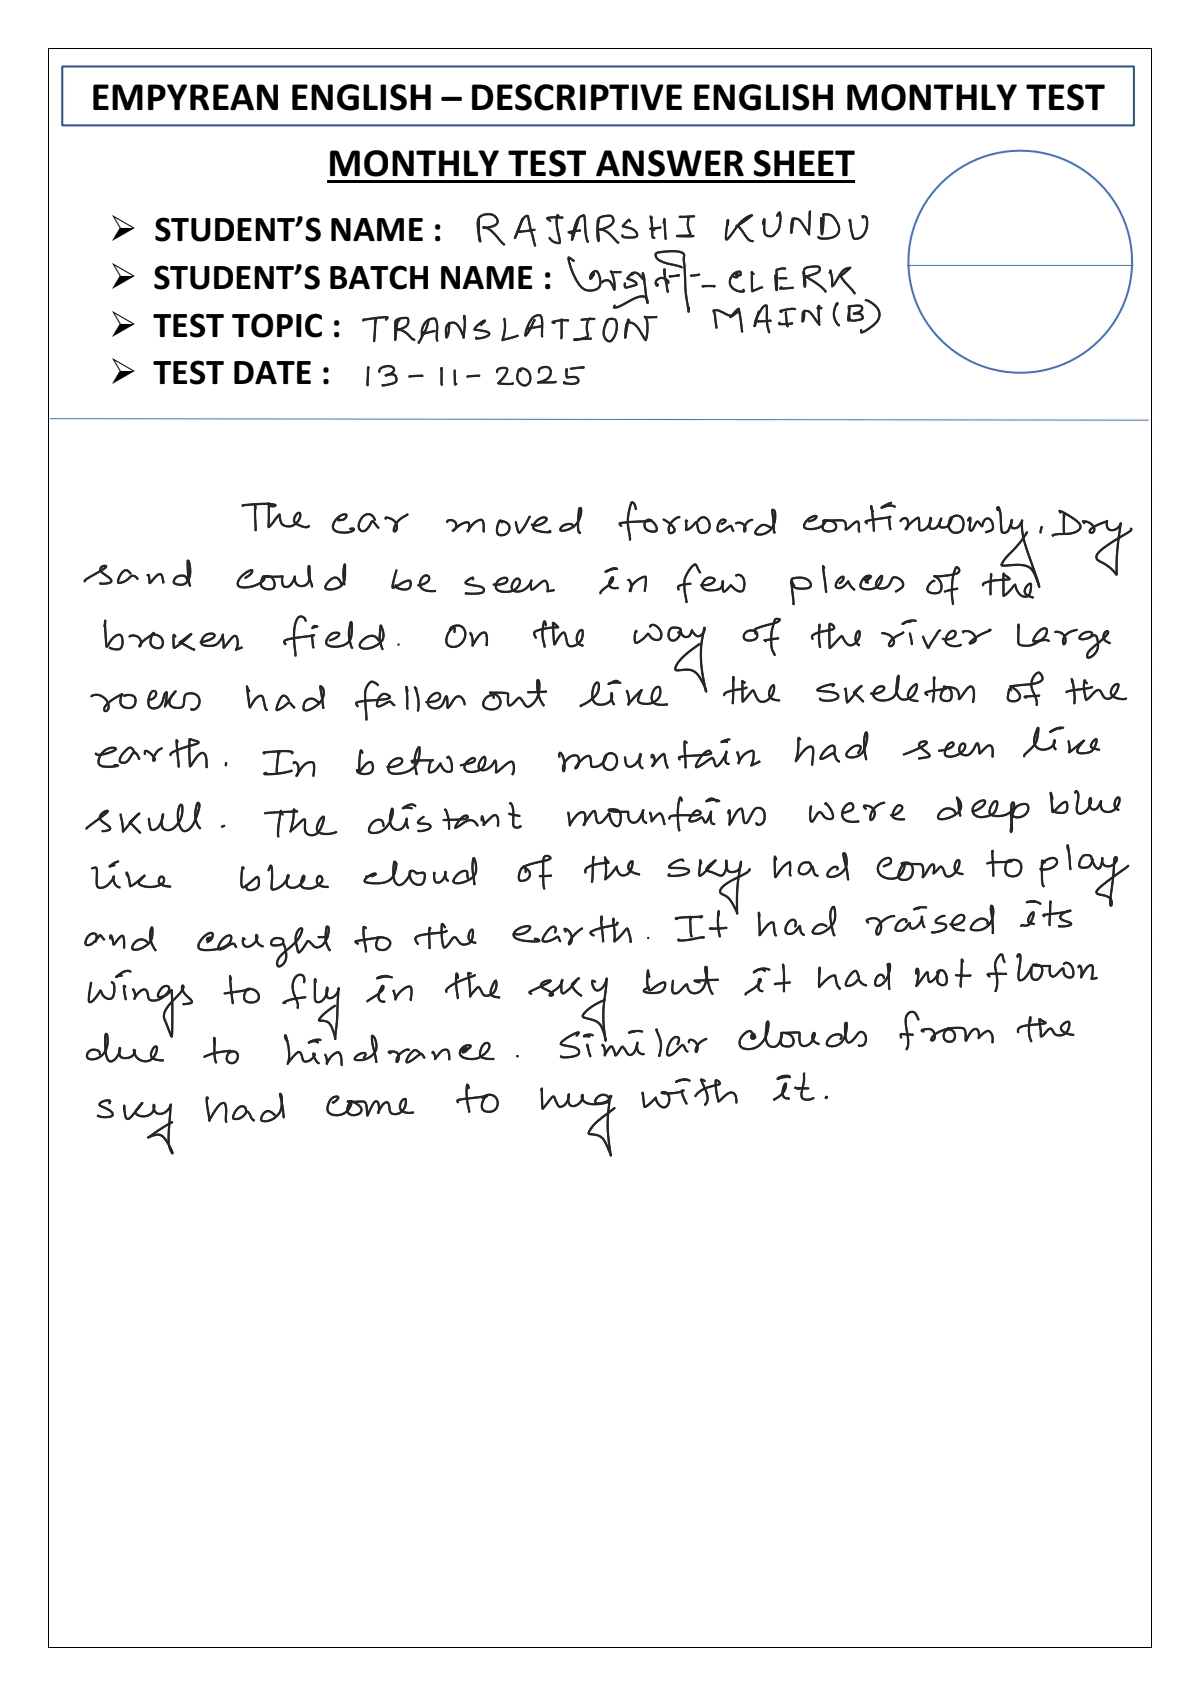 EMPYREAN ENGLISH – DESCRIPTIVE ENGLISH MONTHLY TEST
MONTHLY TEST ANSWER SHEET
➢ STUDENT'S NAME : RAJARSHI KUNDU
➢ STUDENT'S BATCH NAME : অগ্রণী - CLERK
MAIN(B)
➢ TEST TOPIC : TRANSLATION
➢ TEST DATE : 13-11-2025
The car moved forward continuously. Dry
sand could be seen in few places of the
broken field. On the way of the river large
rocks had fallen out like the skeleton of the
earth. In between mountain had seen like
skull. The distant mountains were deep blue
like blue cloud of the sky had come to play
and caught to the earth. It had raised its
wings to fly in the sky but it had not flown
due to hindrance. Similar clouds from the
sky had come to hug with it.